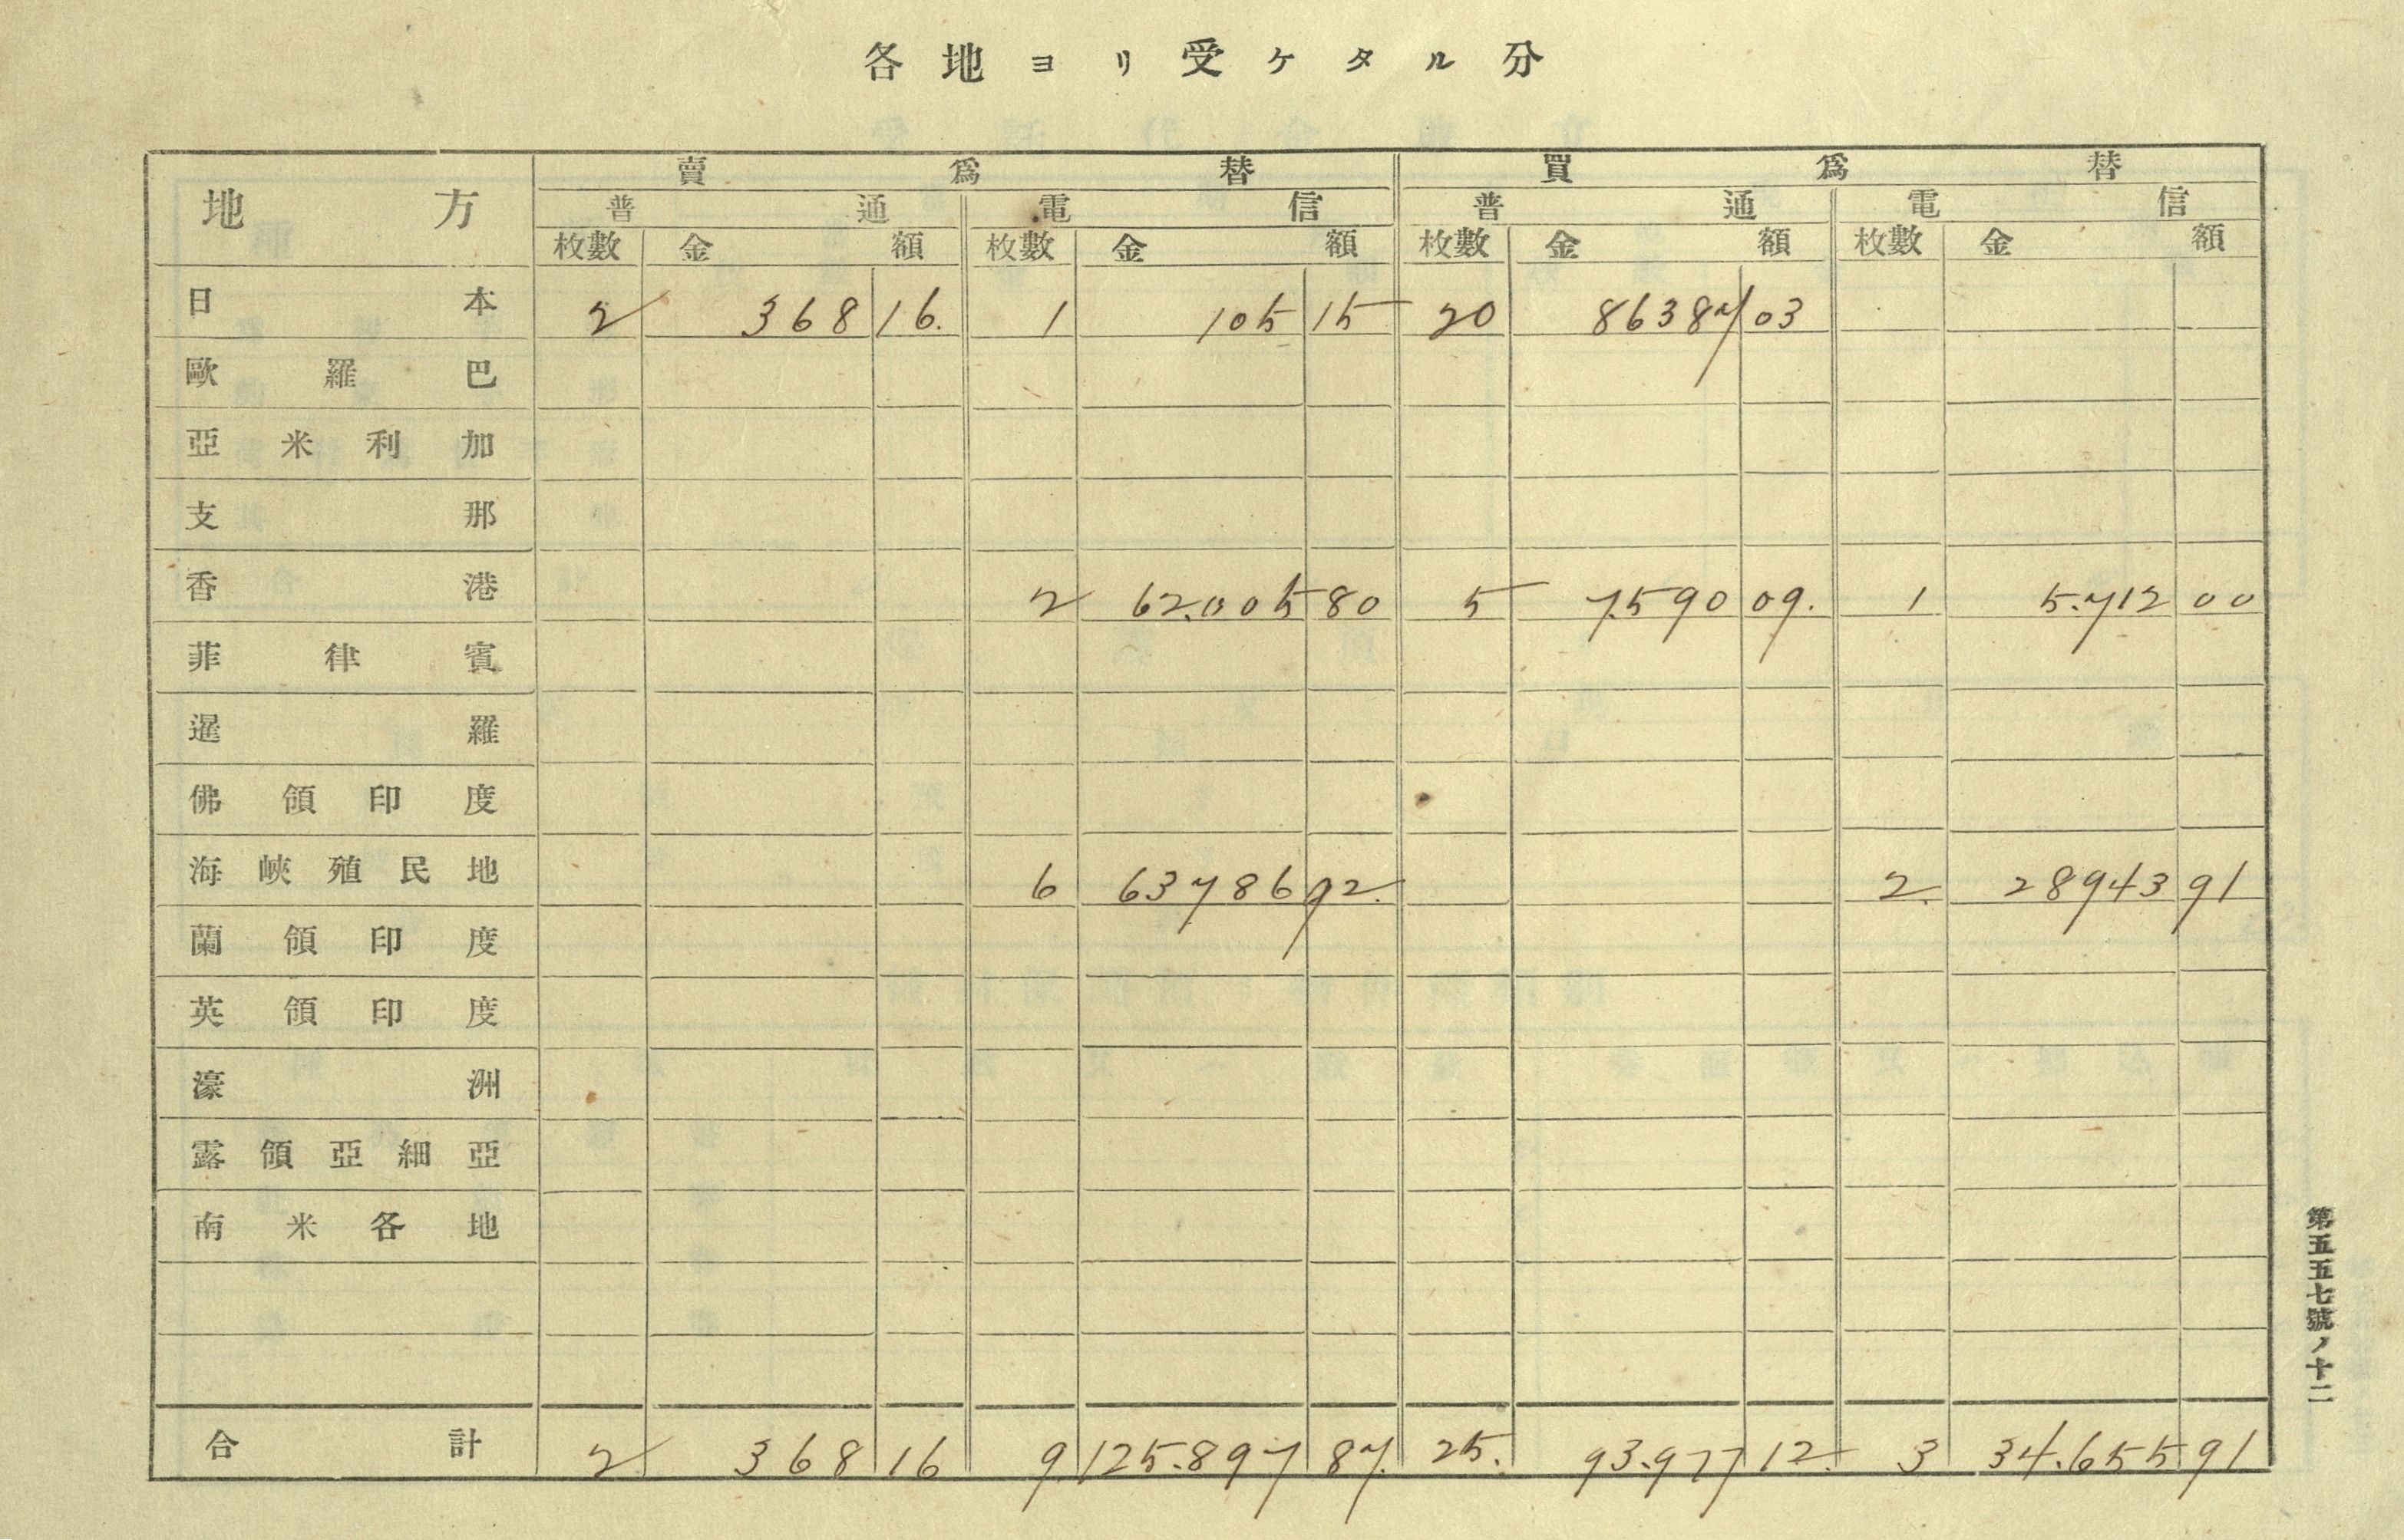 各地ヨリ受ケタル分
地方 賣爲替 買爲替
普通 電信 普通 電信
枚數 金額 枚數 金額 枚數 金額 枚數 金額
日本 2 368 16. 1 105 15 20 86387 03
歐羅巴
亞米利加
支那
香港 2 62.005 80 5 7.590 09. 1 5.712 00
菲律賓
暹羅
佛領印度
海峽殖民地 6 63786 92. 2. 28943 91
蘭領印度
英領印度
濠洲
露領亞細亞
南米各地
合計 2 368 16 9 125.897 87. 25. 93.977 12. 3 34.655 91
第五五七號ノ十二